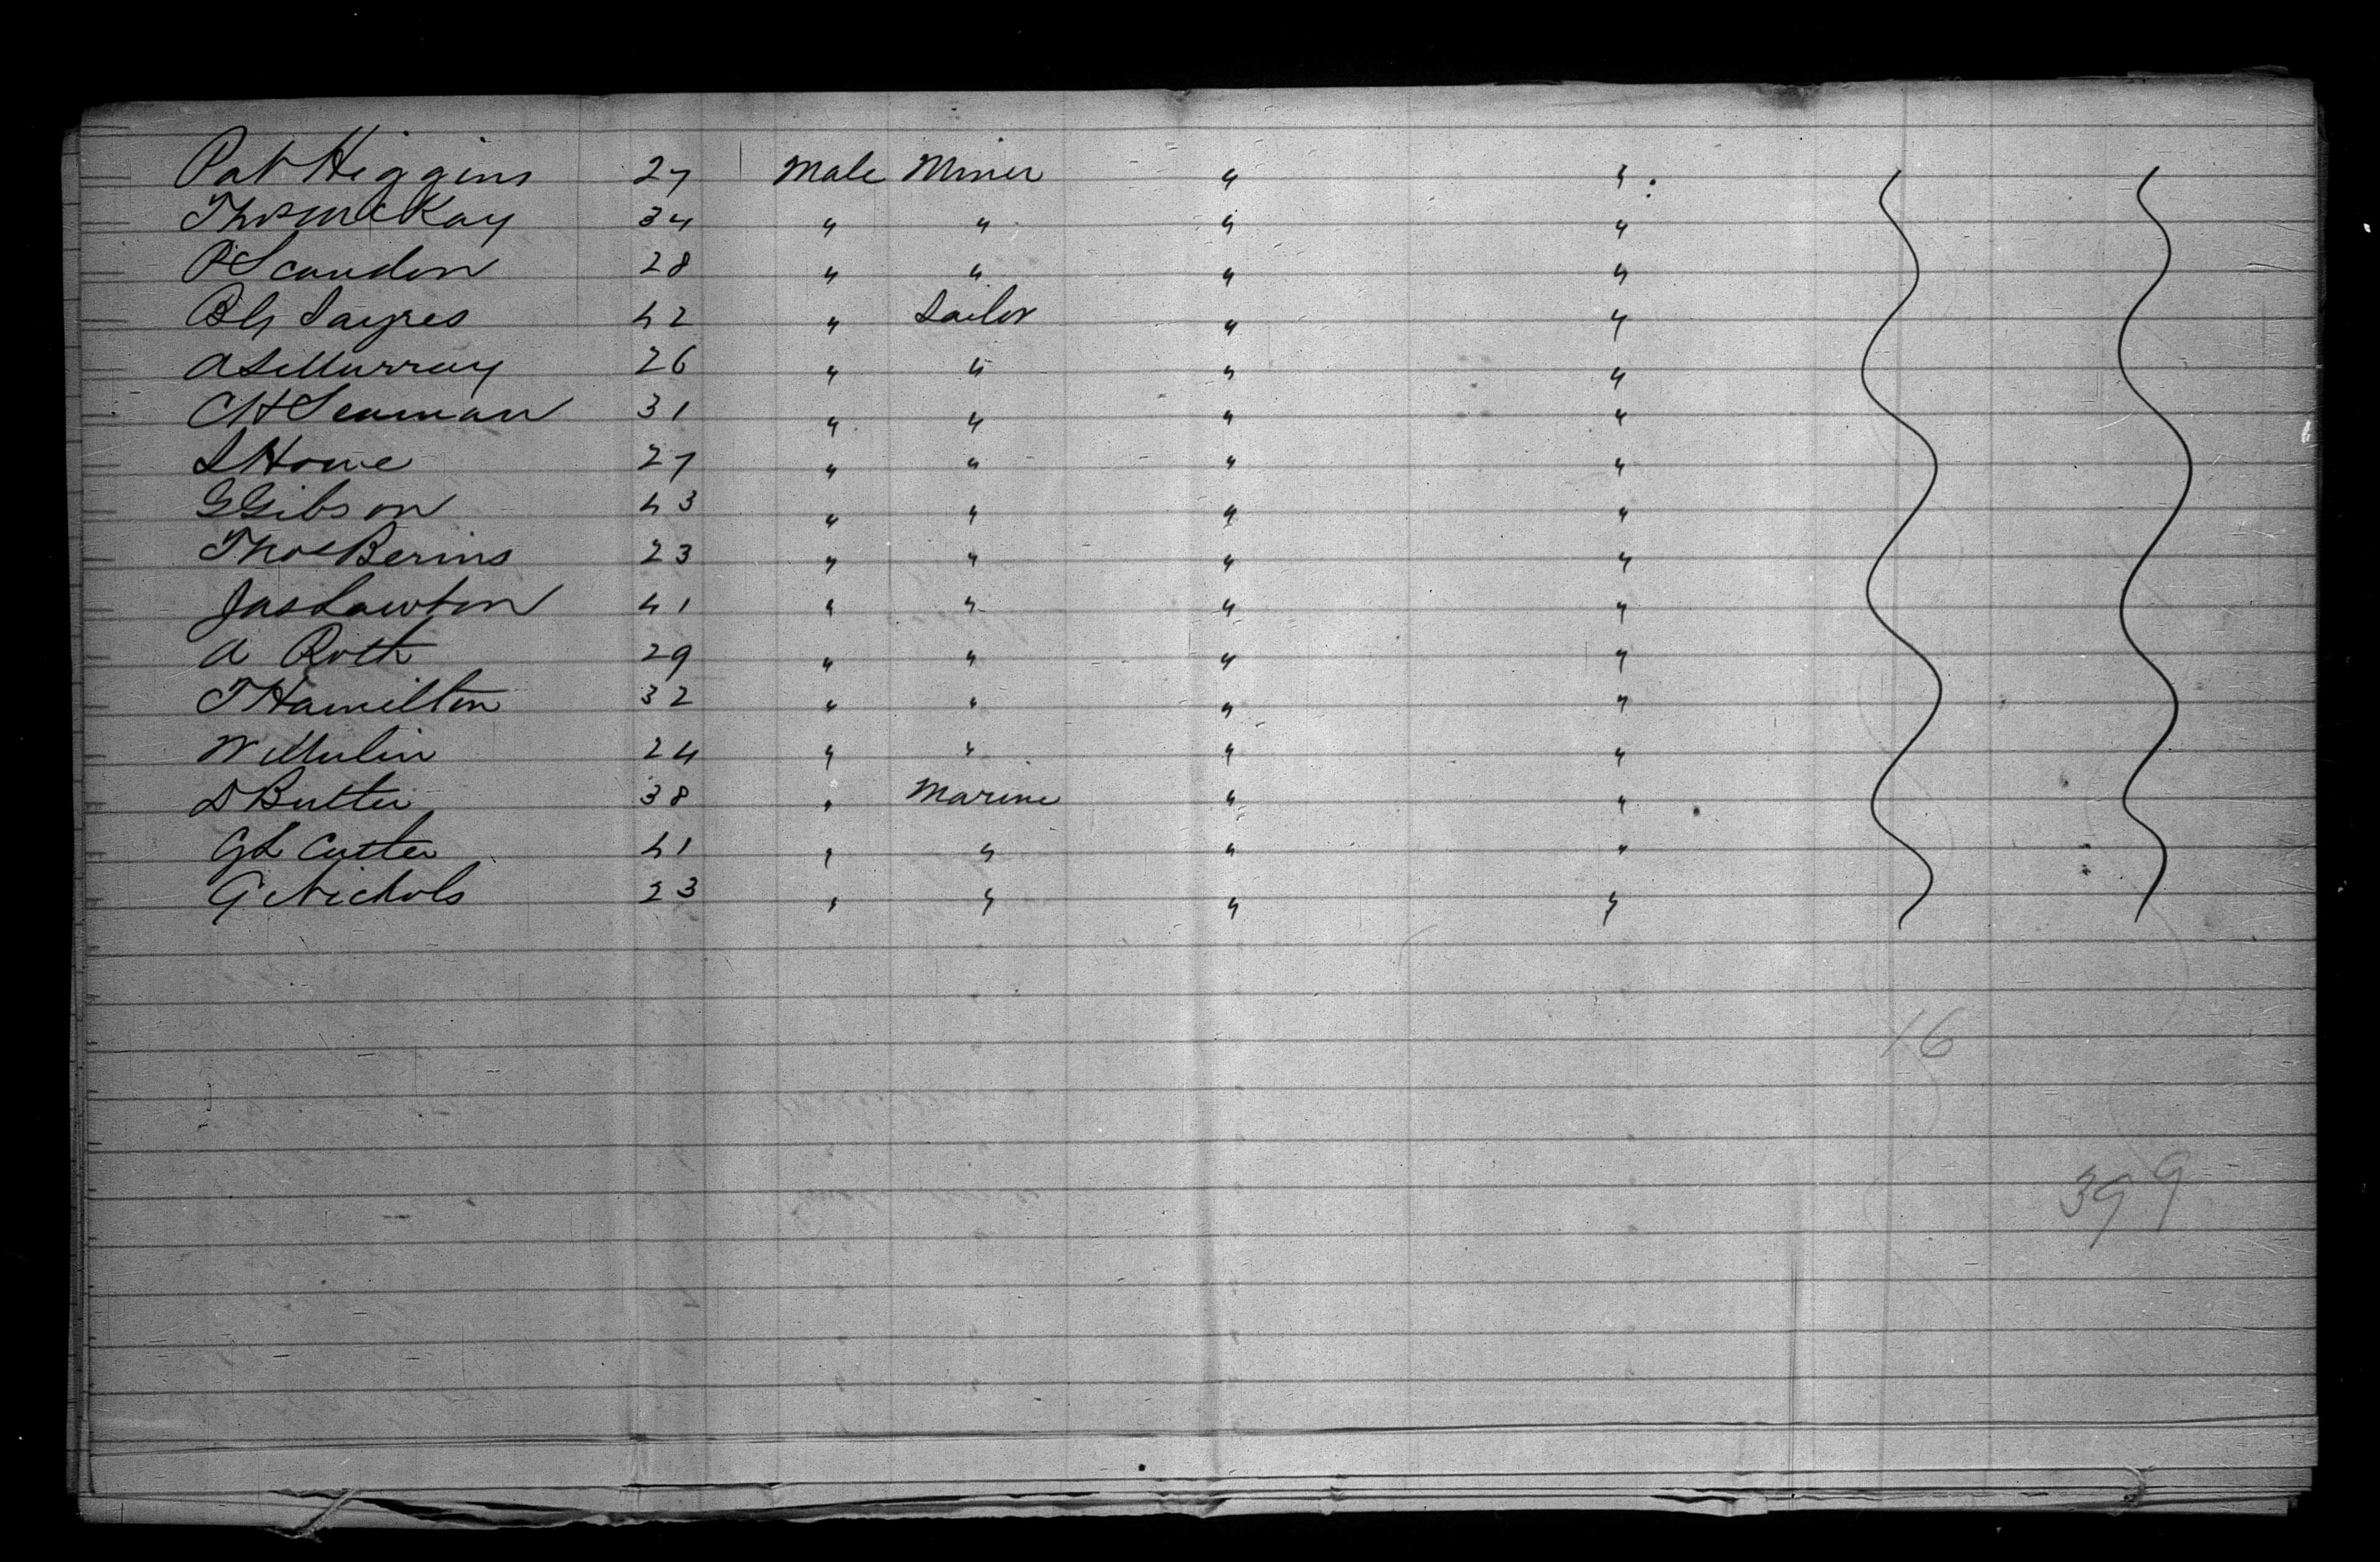 Pat Higgins 27 Male Miner " "
Thos McKay 34 " " " "
P Scandon 28 " " " "
B G Sayres 42 " Sailor " "
A S Murray 26 " " " "
C H Seaman 31 " " " "
S Howe 27 " " " "
G Gibson 43 " " " "
Thos Berins 23 " " " "
Jas Lawton 41 " " " "
A Roth 29 " " " "
T Hamilton 32 " " " "
W Mulin 24 " " " "
D Butler 38 " Marine " "
G L Cutter 41 " " " "
G Nichols 23 " " " "
16
399